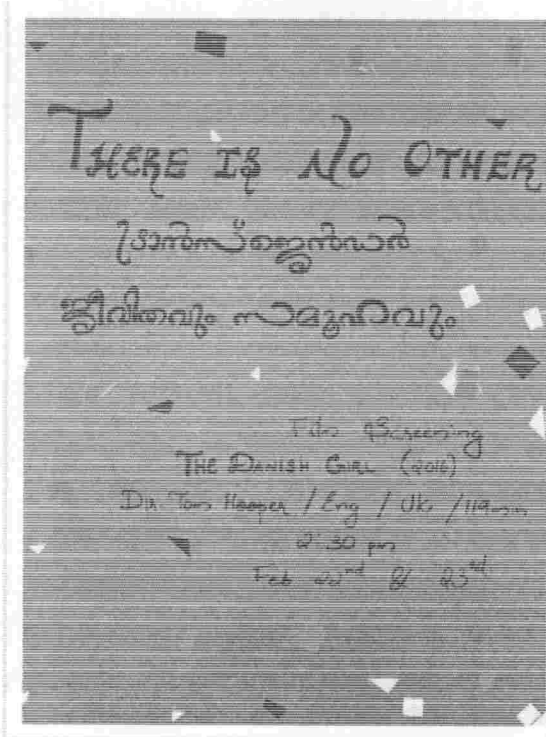 THERE IS NO OTHER
ട്രാൻസ്ജെൻഡർ
ജീവിതവും സമൂഹവും
Film Screening
THE DANISH GIRL (2016)
Dir Tom Hooper / Eng / UK / 119min
2:30 pm
Feb 22nd & 23rd